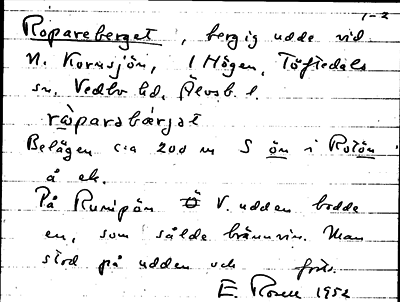 1-2
Ropareberget, bergig udde vid
N. Kornsjön, 1 Högen, Töftedals
sn, Vedbo hd, Älvsb. l.
Belägen c:a 200 m S ön i Rolön
å ek.
På Rumpön Ö V. udden bodde
en, som sålde brännvin. Man
stod på udden och
E. Rosen 1952